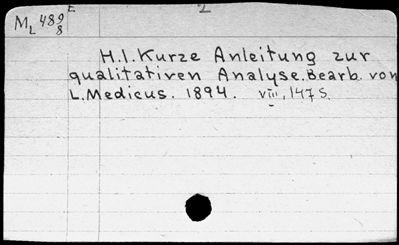 E 2
M_L 489/8
H.1. Kurze Anleitung zur
qualitativen Analyse. Bearb. von
L. Medicus. 1894. VIII, 147 S.